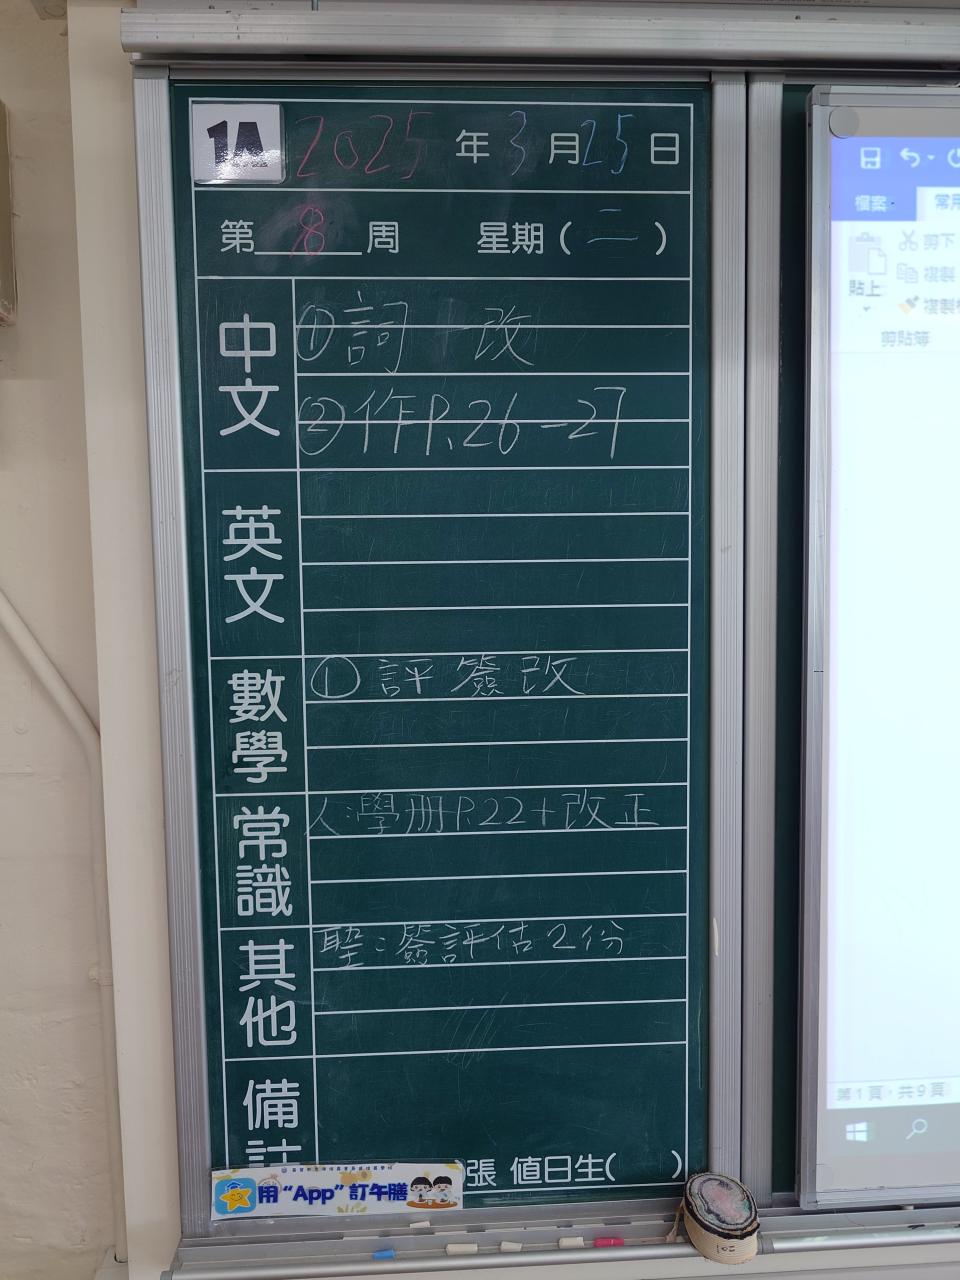 1A 2025年3月25日
第8周 星期(二)
中文
①詞 改
②作P.26-27
英文
數學
①評簽改
常識
人:學册P.22+改正
其他
聖:簽評估2份
備註
張 值日生( )
用“App”訂午膳
檔案 常用
剪下
貼上
複製
複製
剪貼簿
第1頁，共9頁